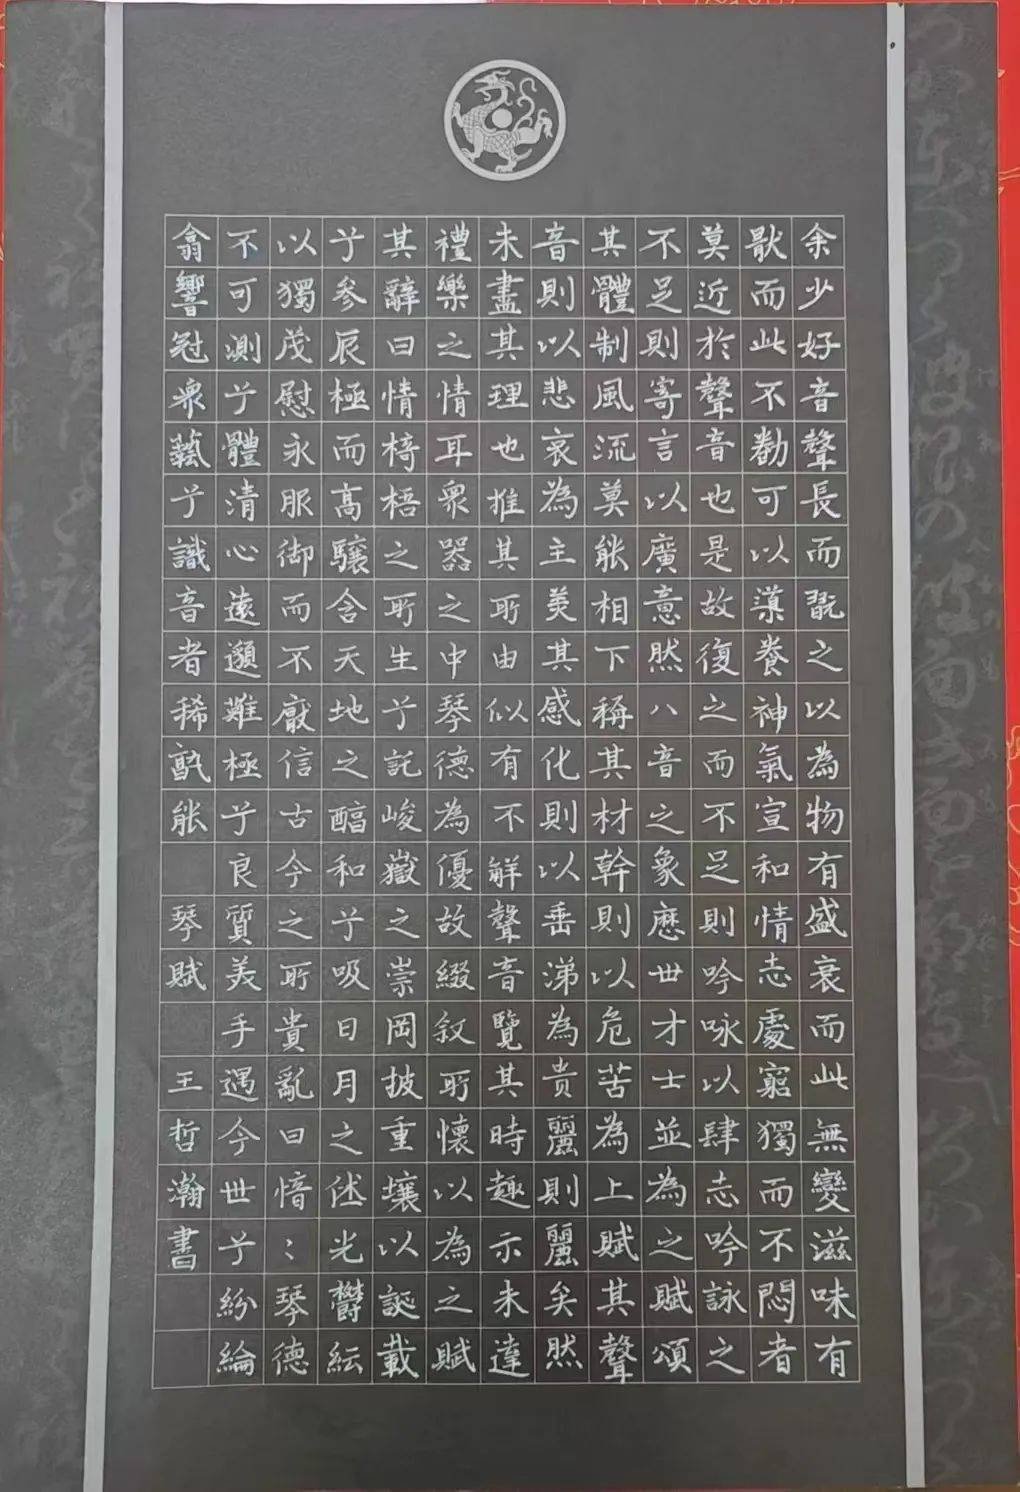 余少好音聲長而翫之以為物有盛衰而此無變滋味有
猒而此不勌可以導養神氣宣和情志處窮獨而不悶者
莫近於聲音也是故復之而不足則吟咏以肆志吟詠之
不足則寄言以廣意然八音之象歷世才士並為之賦頌
其體制風流莫能相下稱其材幹則以危苦為上賦其聲
音則以悲哀為主美其感化則以垂涕為貴麗則麗矣然
未盡其理也推其所由似有不解聲音覽其時趣示未達
禮樂之情耳衆器之中琴德為優故綴叙所懷以為之賦
其辭曰情椅梧之所生兮託峻嶽之崇岡披重壤以誕載
兮參辰極而高驤含天地之醕和兮吸日月之休光鬱紜
以獨茂慰永服御而不厭信古今之所貴亂曰愔〻琴德
不可測兮體清心遠邈難極兮良質美手遇今世兮紛綸
翕響冠衆藝兮識音者稀孰能 琴賦 王哲瀚書